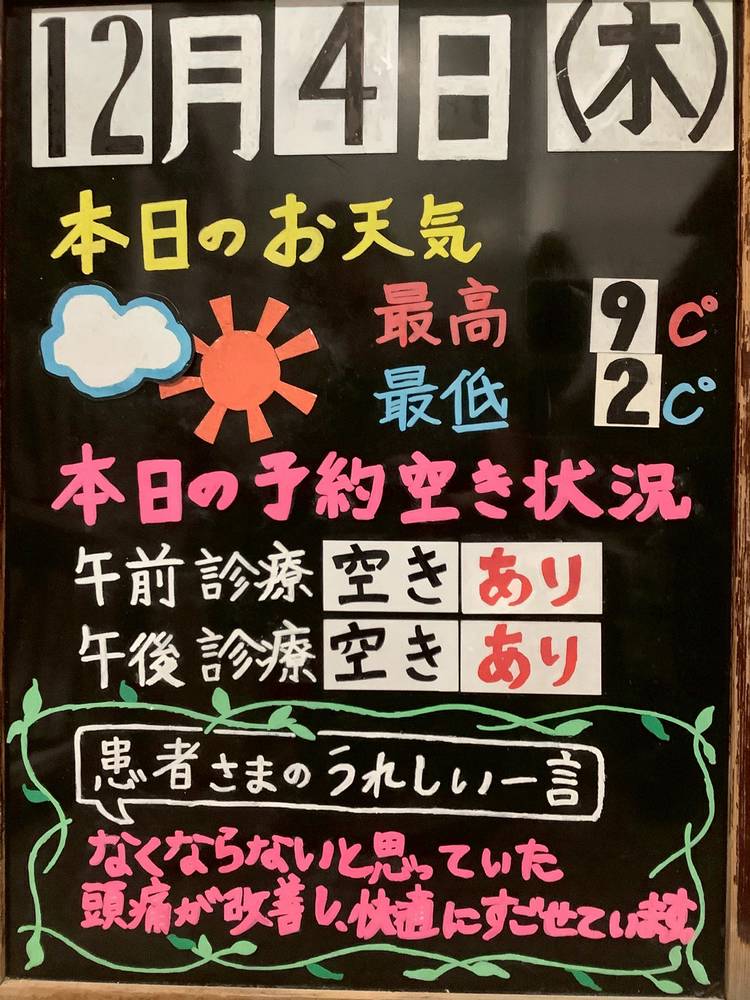 12月4日(木)
本日のお天気
最高 9 C°
最低 2 C°
本日の予約空き状況
午前診療 空き あり
午後診療 空き あり
患者さまのうれしい一言
なくならないと思っていた
頭痛が改善し、快適にすごせています